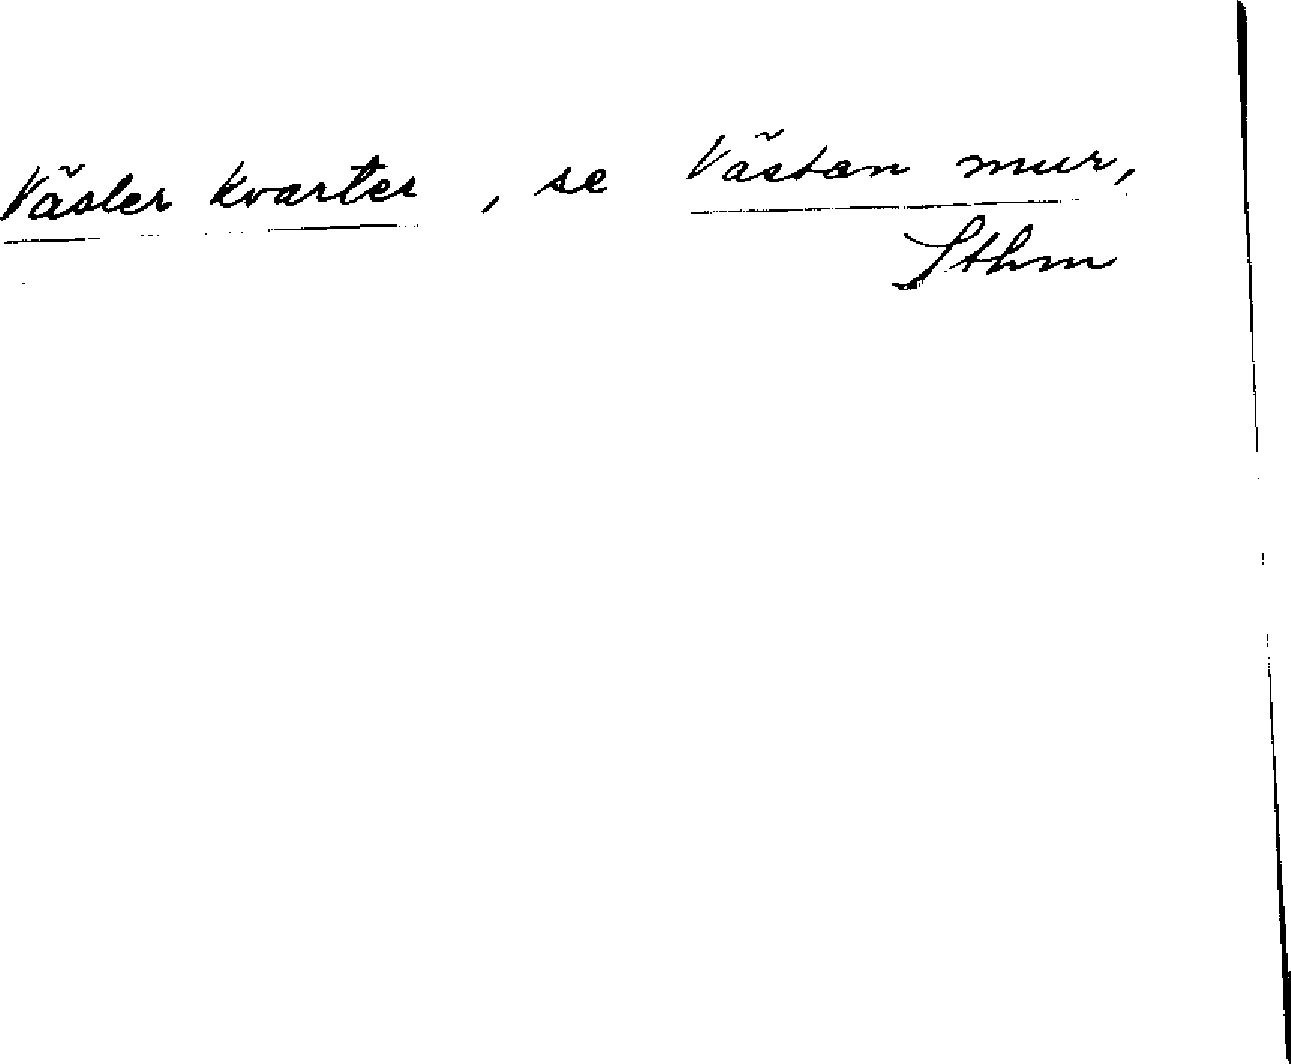 Väster kvarter, se Västan mur,
Sthm